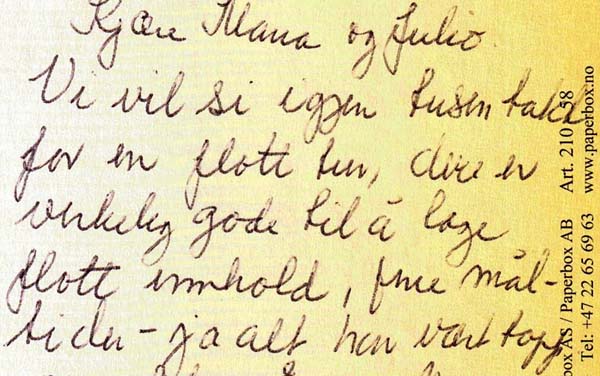 Kjære Mana og Julio.
Vi vil si igjen tusen takk
for en flott tur, dere er
virkelig gode til å lage
flott innhold, fine mål-
tider - ja alt har vært topp
box AS / Paperbox AB Art. 210 158
Tel: +47 22 65 69 63 www.paperbox.no